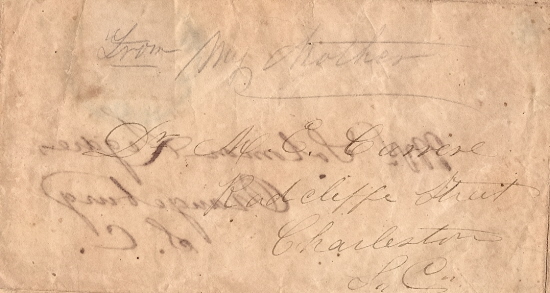 From My Mother
Dr W. E. Carrere
Radcliffe Street
Charleston
S. C.
Mrs
Orangeburg
S. C.